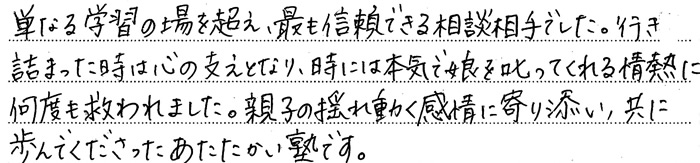 単なる学習の場を超え、最も信頼できる相談相手でした。行き
詰まった時は心の支えとなり、時には本気で娘を叱ってくれる情熱に
何度も救われました。親子の揺れ動く感情に寄り添い、共に
歩んでくださったあたたかい塾です。